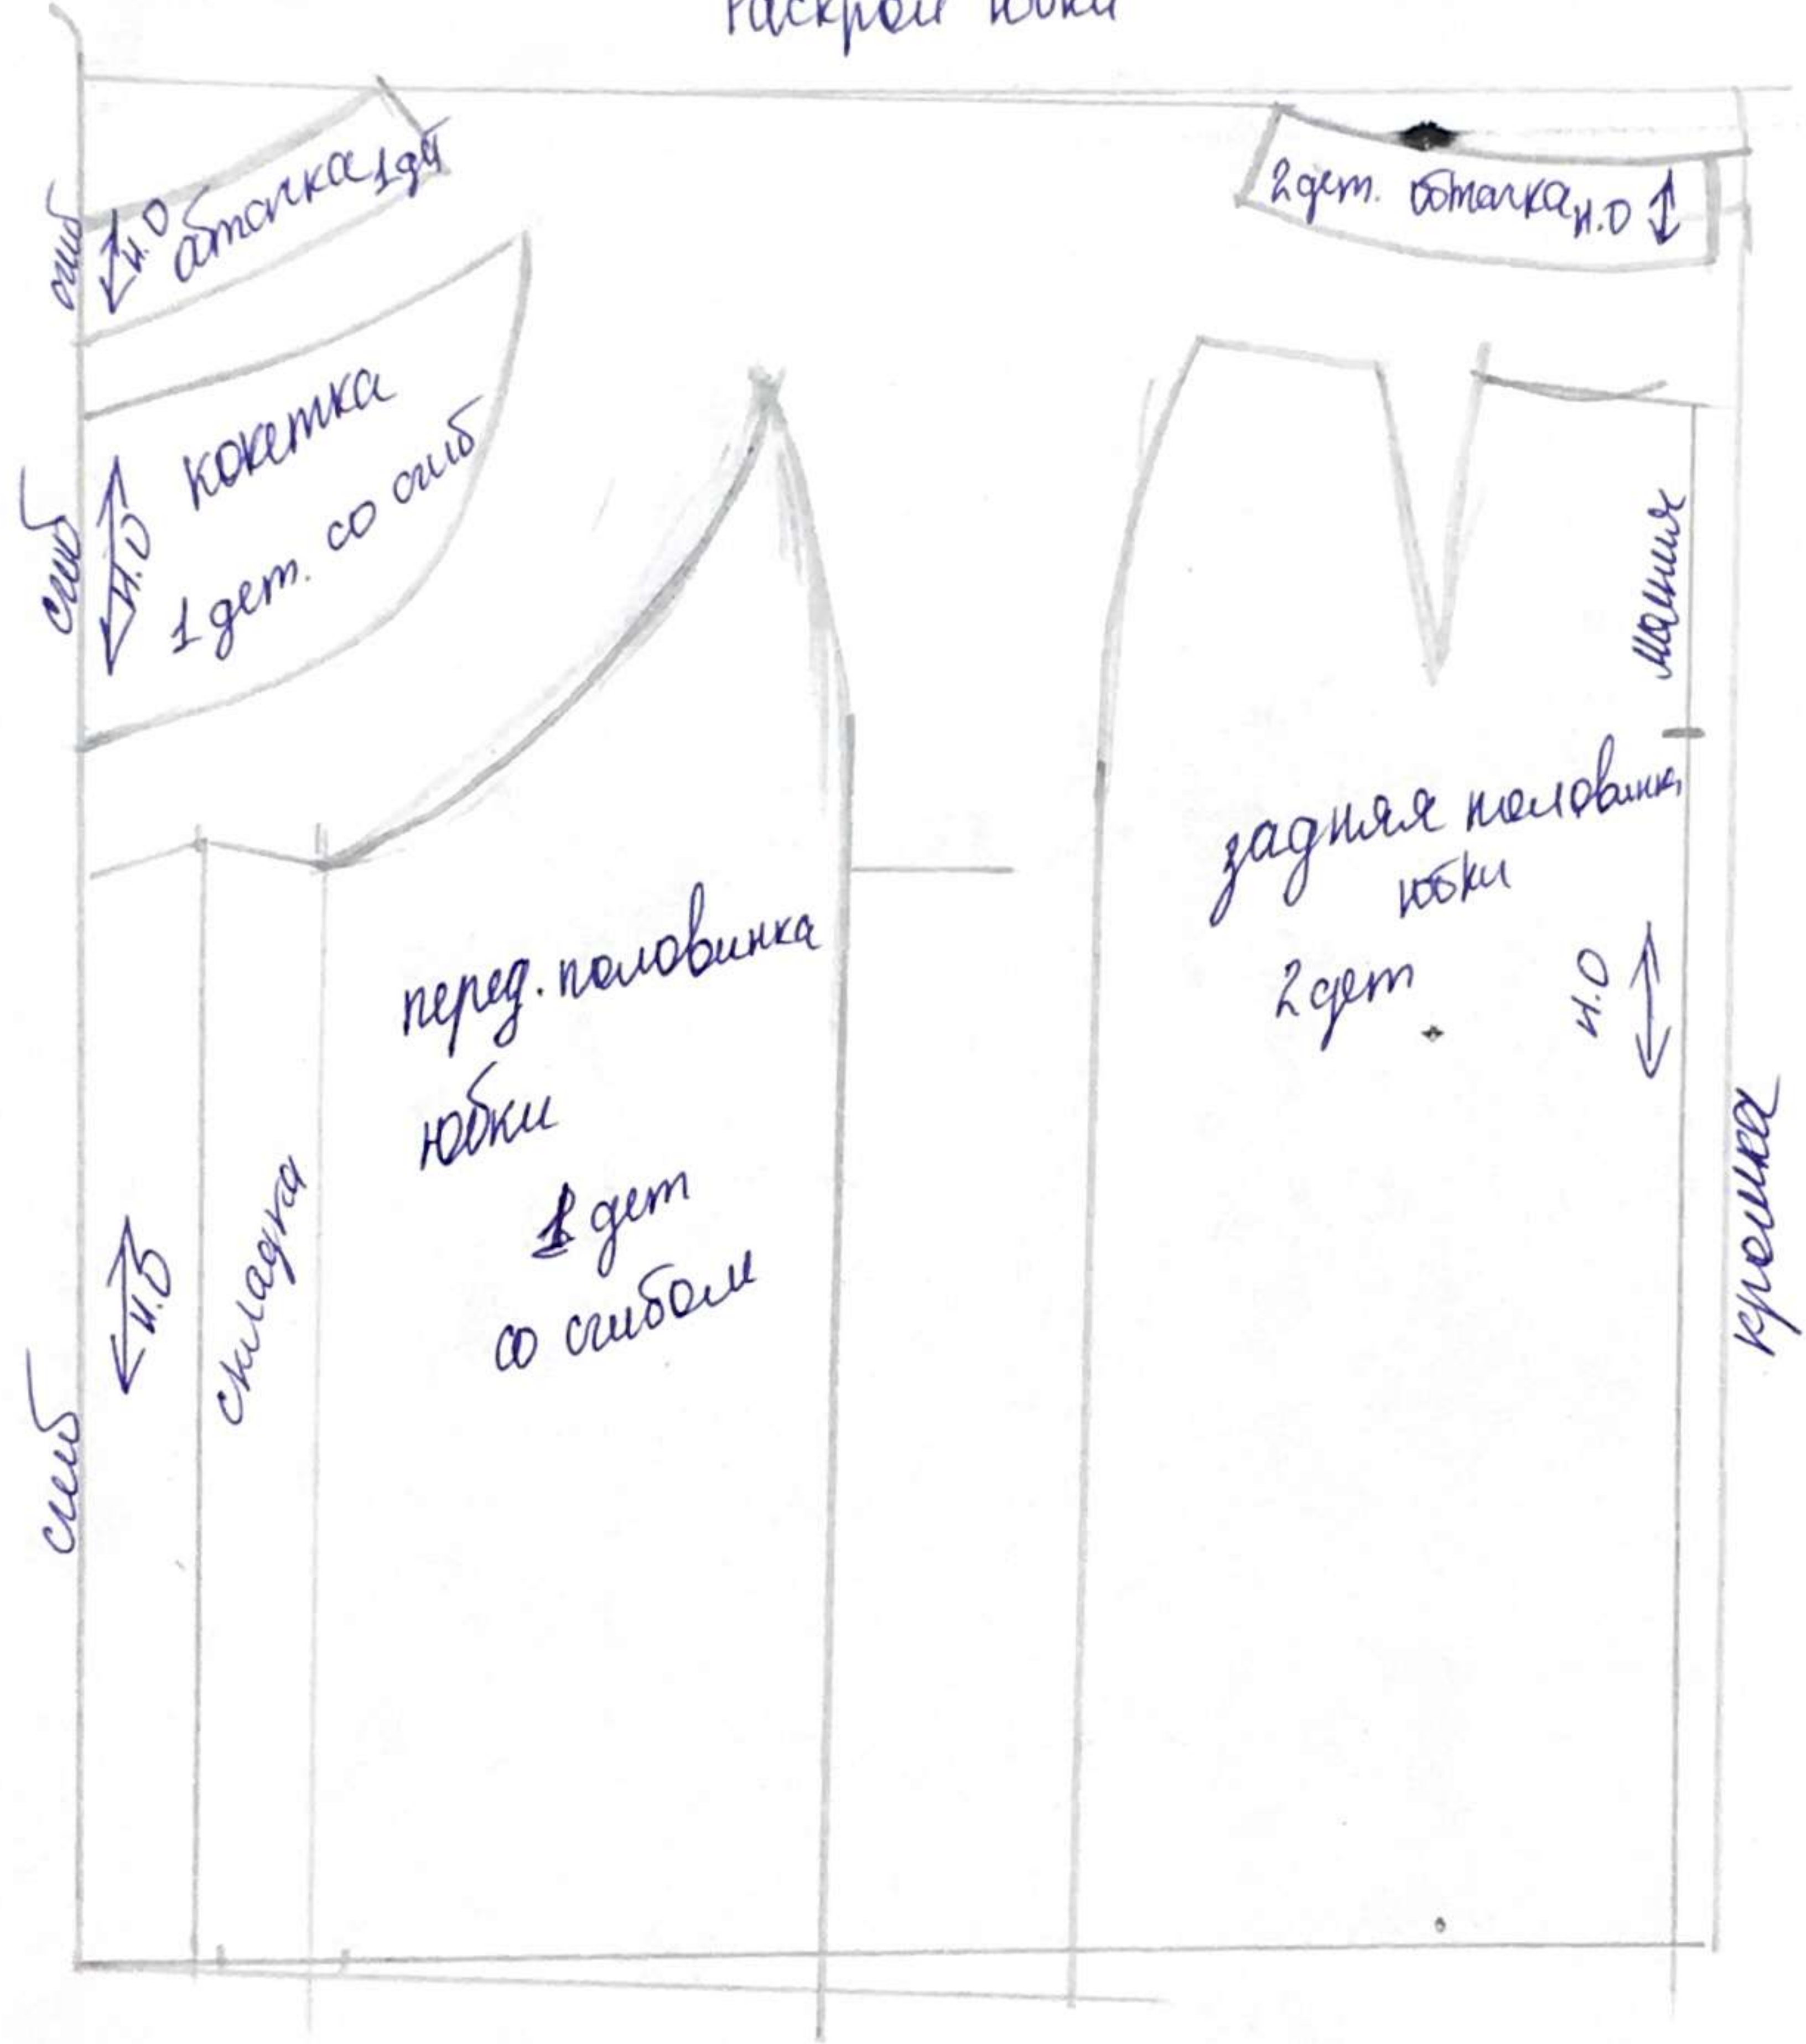 Раскрой юбки
сгиб
н.О
обтачка 1д
2 дет. обтачка н.О
сгиб
н.О
кокетка
1 дет. со сгиб
молния
задняя половинка
юбки
2 дет
н.О
перед. половинка
юбки
1 дет
со сгибом
складка
н.О
сгиб
кромка